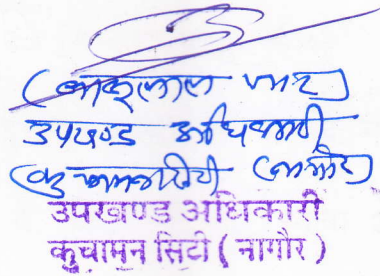 उपखण्ड अधिकारी
(कुचामनसिटी) (नागौर)
उपखण्ड अधिकारी
कुचामन सिटी ( नागौर )